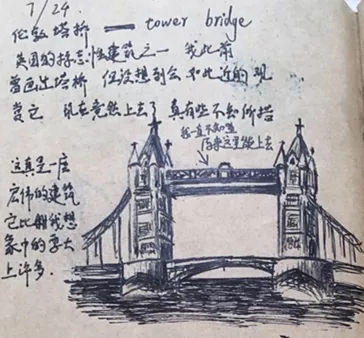 7/24.
伦敦塔桥 — tower bridge
英国的标志性建筑之一 我此前
曾画过塔桥 但没想到会如此近的观
赏它 现在竟然上去了 真有些不知所措
我一直不知道
原来这里能上去
这真是一座
宏伟的建筑
它比我想
象中的要大
上许多.